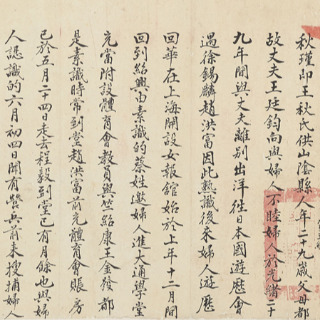 秋瑾即王秋氏供山陰縣人年二十九歲父母都
故丈夫王廷鈞向與婦人不睦婦人於光緒二十
九年間與丈夫離別出洋往日本國遊歷會
遇徐錫麟趙洪富因此熟識後來婦人遊歷
回華在上海開設女報館始於上年十二月間
回到紹興由素識的蔡姓邀婦人進大通學堂
充當附設體育會教員與竺紹康王金發都
是素識時常到堂趙洪富前充體育會賬房
已於五月二十四日走去程毅到堂已有月餘也與婦
人認識的六月初四日聞有營兵前來搜捕婦人